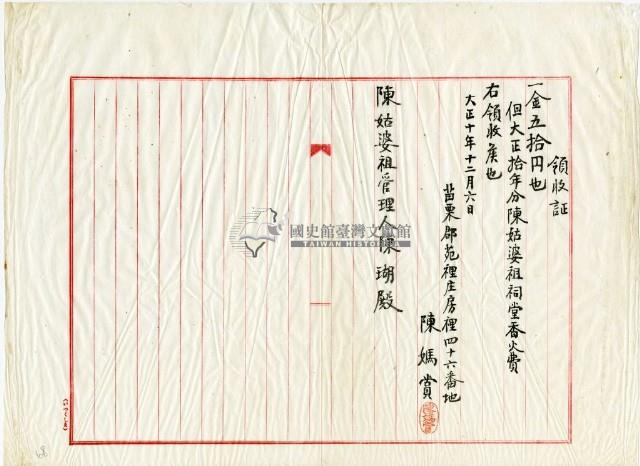 領收証
一金五拾円也
但大正拾年分陳姑婆祖祠堂香火費
右領收候也
大正十年十二月六日
苗栗郡苑裡庄房裡四十六番地
陳媽賞
陳姑婆祖管理人陳瑚殿
國史館臺灣文獻館
TAIWAN HISTORICA
68